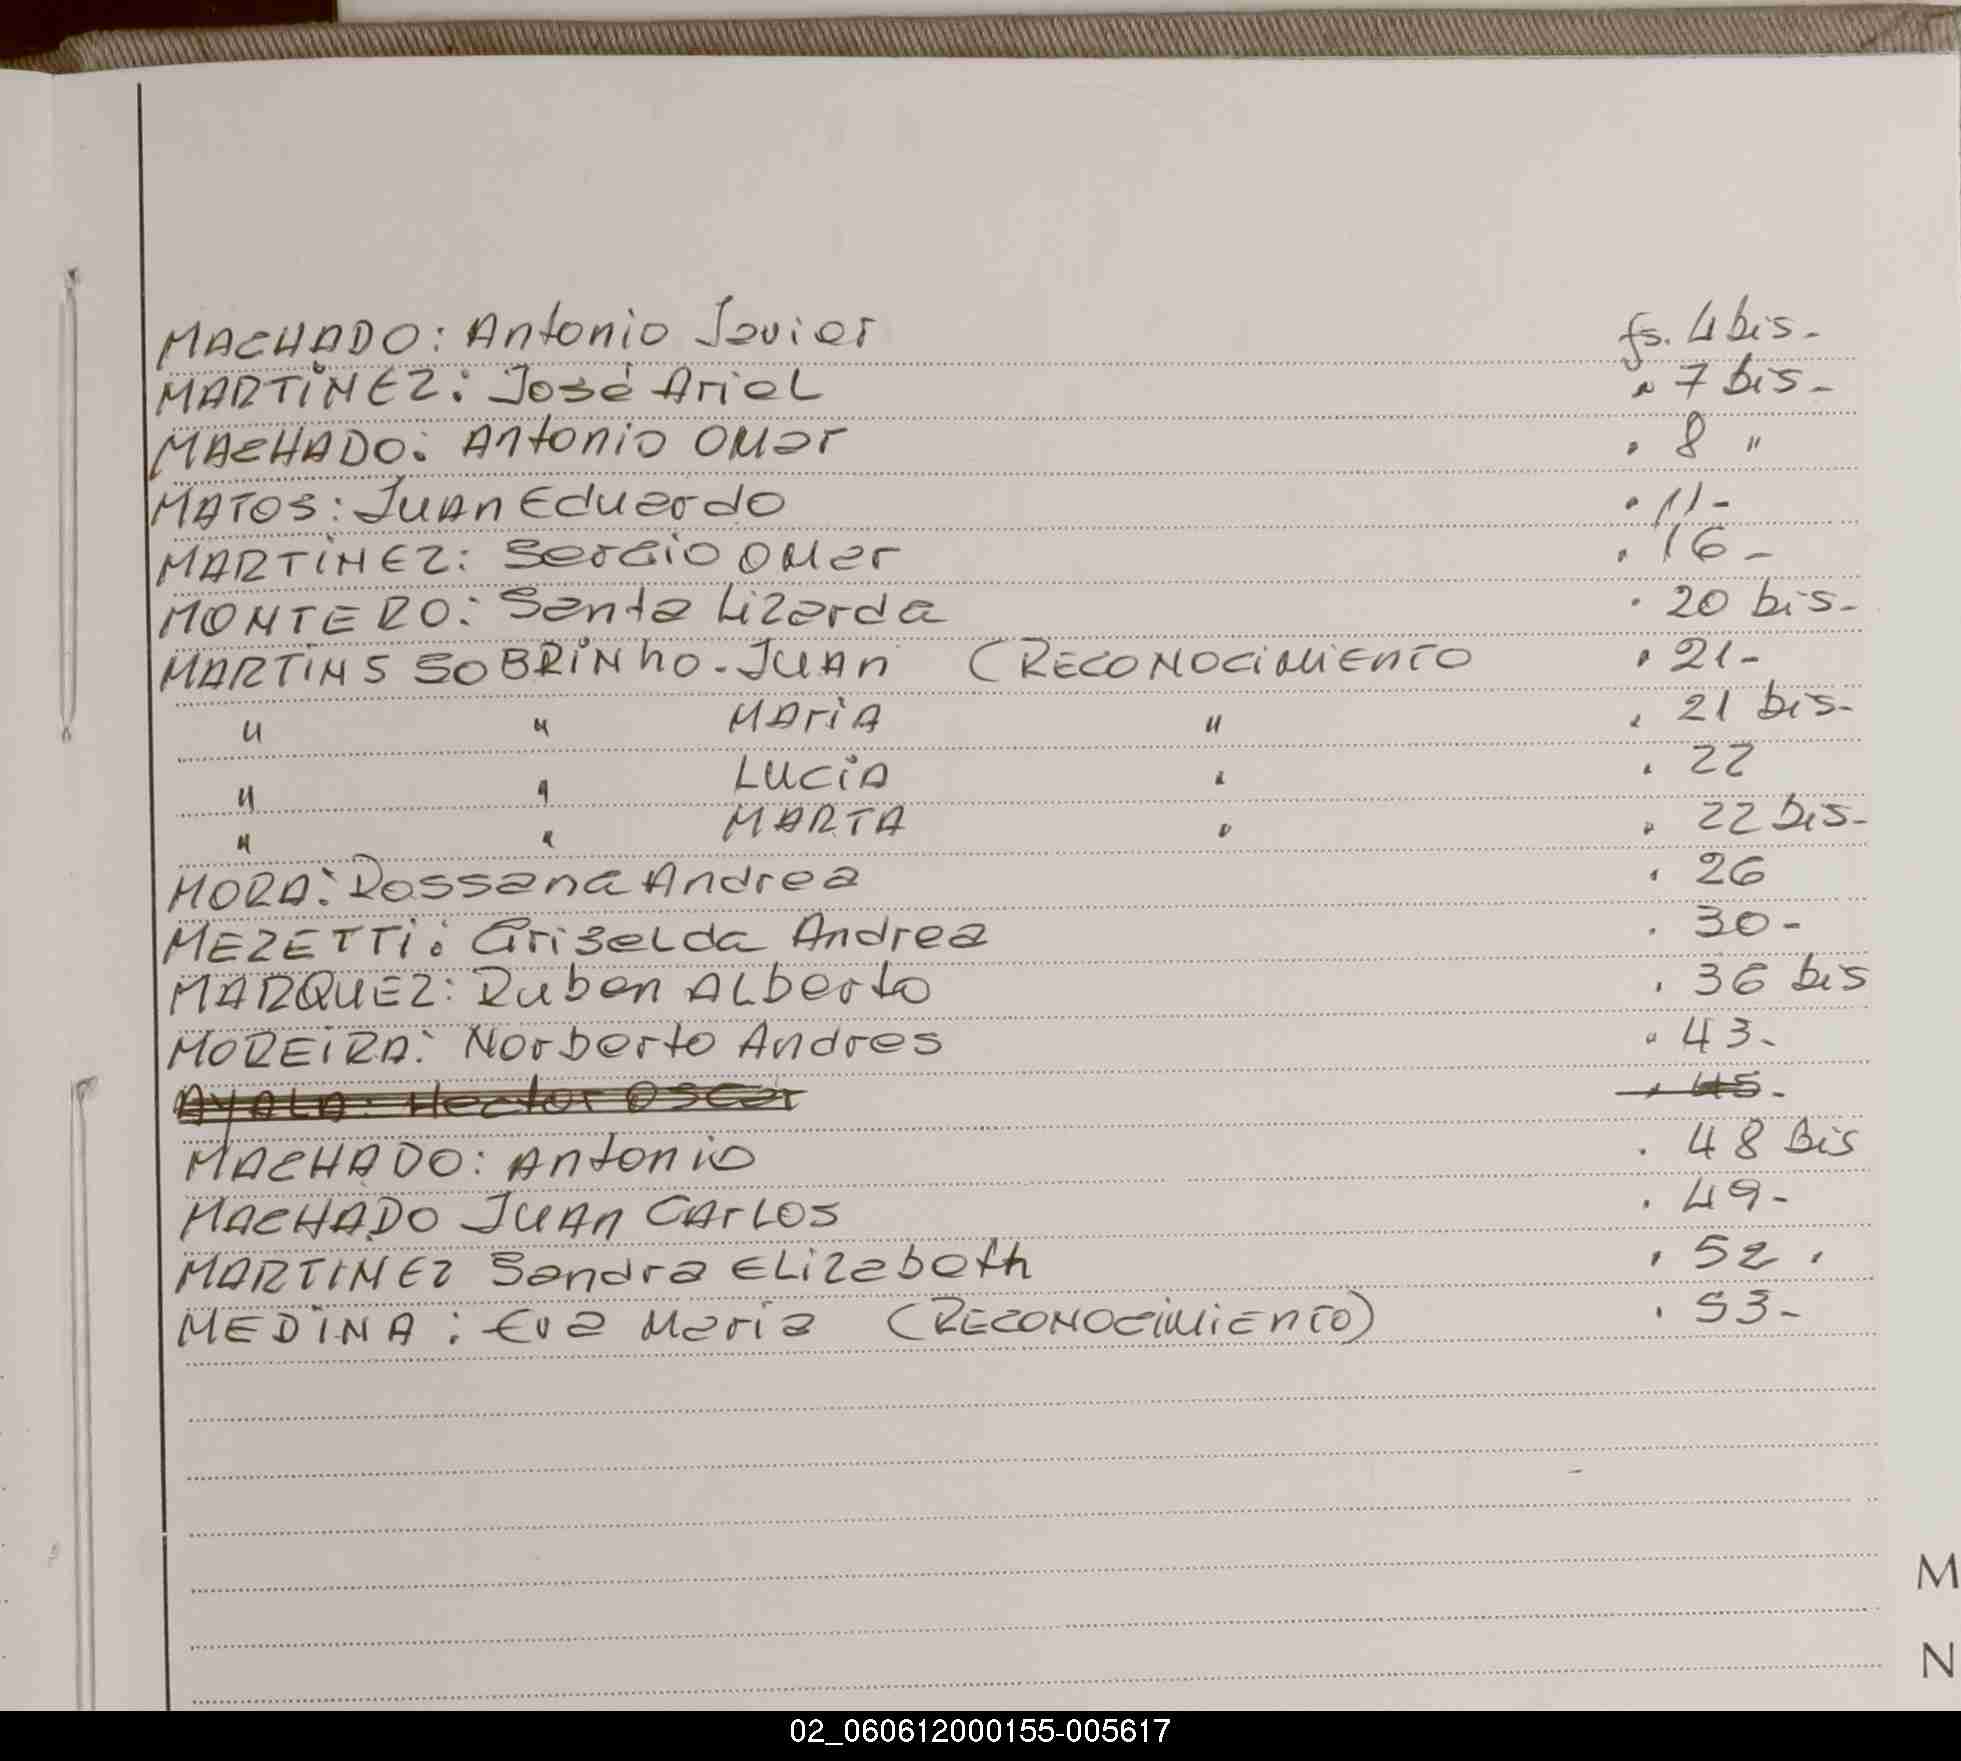 MACHADO: Antonio Javier fs. 4 bis-
MARTINEZ: José Ariel " 7 bis-
MACHADO: Antonio Omar " 8 "
MATOS: Juan Eduardo " 11-
MARTINEZ: Sergio Omar " 16-
MONTERO: Santa Lizarda " 20 bis-
MARTINS SOBRINHO- JUAN (RECONOCIMIENTO " 21-
" " MARIA " " 21 bis-
" " LUCIA " " 22
" " MARTA " " 22 bis-
MORA: Rossana Andrea " 26
MEZETTI: Griselda Andrea " 30-
MARQUEZ: Ruben Alberto " 36 bis
MOREIRA: Norberto Andres " 43-
AYALA: Hector Oscar " 45-
MACHADO: Antonio " 48 Bis
MACHADO JUAN CARLOS " 49-
MARTINEZ Sandra Elizabeth " 52.
MEDINA: Eva Maria (RECONOCIMIENTO) " 53-
M
N
02_060612000155-005617